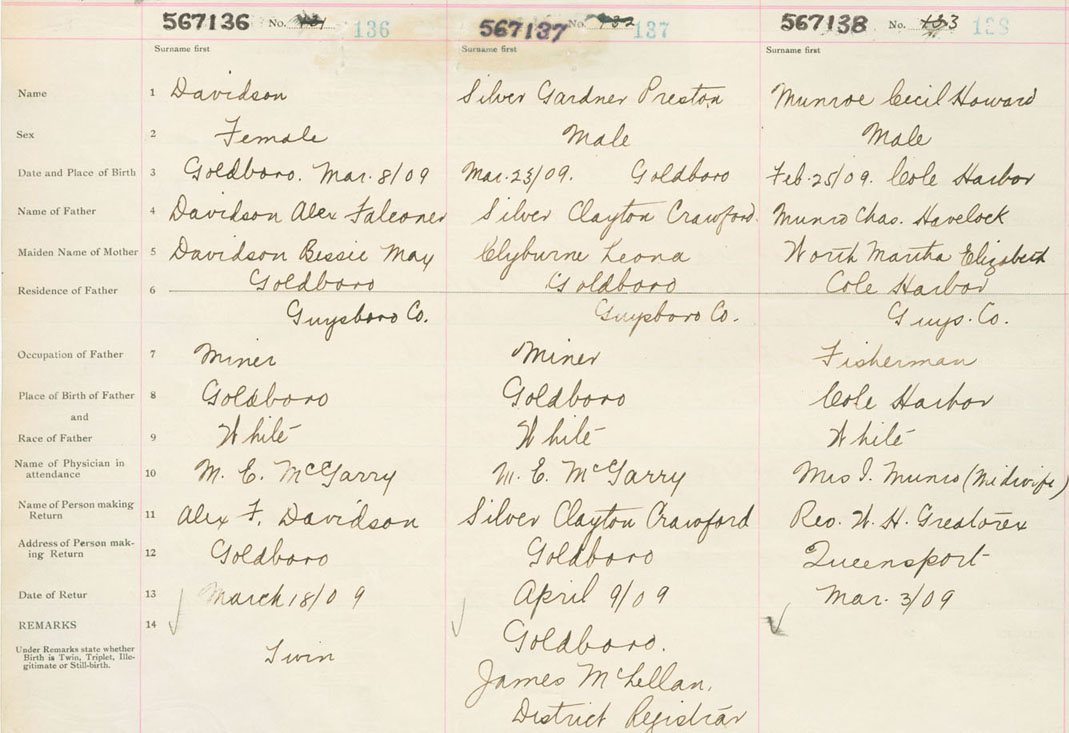 567136 No. 131 136 567137 No. 132 137 567138 No. 133 138
Surname first Surname first Surname first
Name 1 Davidson Silver Gardner Preston Munroe Cecil Howard
Sex 2 Female Male Male
Date and Place of Birth 3 Goldboro. Mar. 8/09 Mar. 23/09. Goldboro Feb. 25/09. Cole Harbor
Name of Father 4 Davidson Alex Falconer Silver Clayton Crawford. Munro Chas. Havelock
Maiden Name of Mother 5 Davidson Bessie May Clyburne Leona Worth Martha Elizabeth
Residence of Father 6 Goldboro Goldboro Cole Harbor
Guysboro Co. Guysboro Co. Guys. Co.
Occupation of Father 7 Miner Miner Fisherman
Place of Birth of Father 8 Goldboro Goldboro Cole Harbor
and
Race of Father 9 White White White
Name of Physician in
attendance 10 M. E. McGarry M. E. McGarry Mrs I. Munro (Midwife)
Name of Person making
Return 11 Alex F. Davidson Silver Clayton Crawford Rev. W. H. Greatorex
Address of Person mak-
ing Return 12 Goldboro Goldboro Queensport
Date of Retur 13 March 18/09 April 9/09 Mar. 3/09
REMARKS 14 Goldboro.
Under Remarks state whether
Birth is Twin, Triplet, Ille-
gitimate or Still-birth. Twin James McLellan,
District Registrar